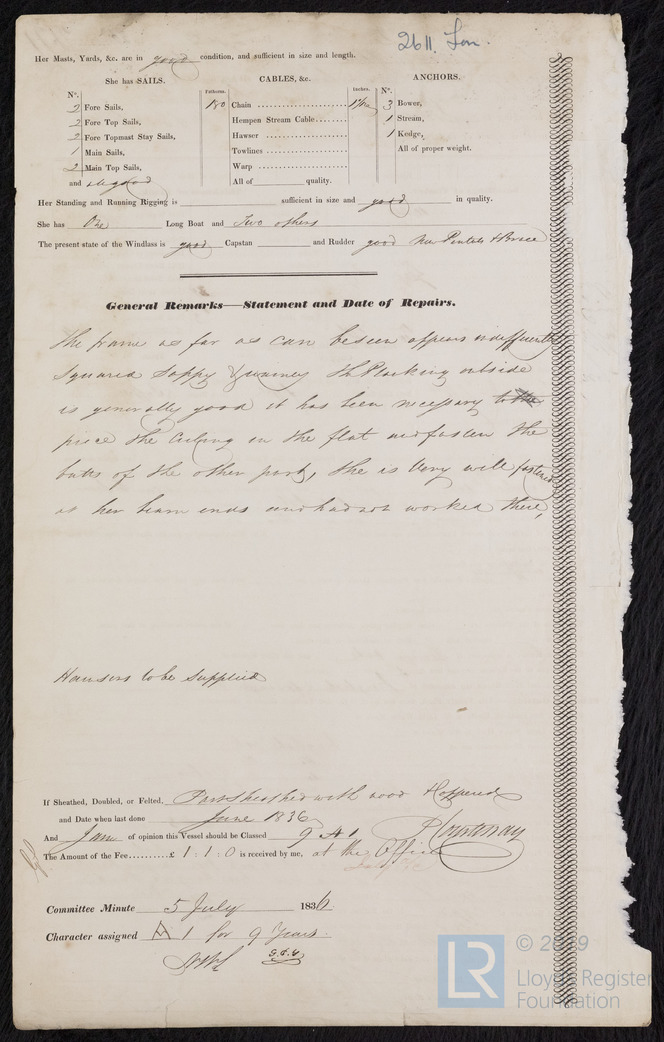 2611. Lon.
Her Masts, Yards, &c. are in good condition, and sufficient in size and length.
She has SAILS. CABLES, &c. ANCHORS.
N°. Fathoms. Inches. N°.
2 Fore Sails, 180 Chain 3 Bower,
2 Fore Top Sails, Hempen Stream Cable 1 Stream,
2 Fore Topmast Stay Sails, Hawser 1 Kedge,
1 Main Sails, Towlines All of proper weight.
2 Main Top Sails, Warp
and all good All of quality.
Her Standing and Running Rigging is sufficient in size and good in quality.
She has One Long Boat and Two others
The present state of the Windlass is good Capstan and Rudder good New Pintels & Brace
General Remarks—Statement and Date of Repairs.
The frame as far as can be seen appears indifferently
squared Sappy & wainey The Planking outside
is generally good it has been necessary to the
piece the Ceiling in the flat and fasten the
butts of the other part, she is very well fastened
as her beam ends and had not worked there,
Hawsers to be supplied
If Sheathed, Doubled, or Felted, Part Sheathed with wood & Coppered
and Date when last done June 1836
And I am of opinion this Vessel should be Classed 9 A 1 P Courtenay
The Amount of the Fee £ 1 : 1 : 0 is received by me, at the Office
Committee Minute 5 July 1836.
Character assigned A 1 for 9 Years
© 2019
LR
Lloyd's Register
Foundation